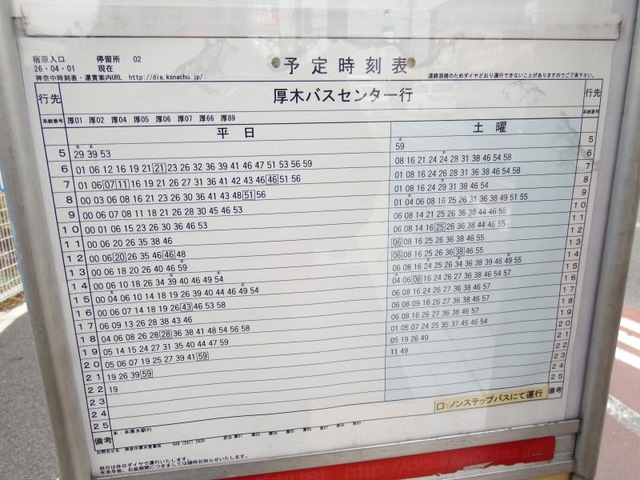 宿原入口 停留所 02
26・04・01 現在
神奈中時刻表・運賃案内URL http://dia.kanachu.jp/
予定時刻表
道路混雑のためダイヤどおり運行できないことがありますのでご了承下さい。
行先 厚木バスセンター行 行先
系統番号 厚01 厚02 厚04 厚05 厚06 厚07 厚66 厚89 系統番号
平日 土曜
5 29 39 53 59 5
6 01 06 12 16 19 21 21 23 26 32 36 39 41 46 47 51 53 56 59 08 16 21 24 24 28 31 38 46 54 58 6
7 01 06 07 11 16 19 21 26 27 31 36 41 42 43 46 46 51 56 01 08 16 24 26 28 31 36 46 54 58 7
8 00 03 06 08 16 21 23 26 30 36 41 43 48 51 56 01 08 16 24 29 31 38 46 54 8
9 00 06 07 08 11 18 21 26 28 30 45 46 53 01 04 06 08 16 25 26 31 36 38 49 51 55 9
10 00 01 06 15 23 26 30 36 46 53 06 08 14 21 25 26 36 38 44 46 55 10
11 00 06 20 26 35 38 46 06 08 14 16 25 26 36 38 44 46 55 11
12 00 06 20 26 35 46 46 48 06 08 16 25 26 36 38 46 55 12
13 00 06 18 20 26 40 46 59 06 08 16 25 26 36 38 46 55 13
14 00 06 10 18 26 34 39 40 46 49 54 06 08 16 24 25 26 34 36 38 39 46 49 55 14
15 00 04 06 10 14 18 19 26 39 40 44 46 49 54 04 06 08 16 24 26 27 36 38 46 54 57 15
16 00 06 07 14 18 19 26 43 46 53 58 06 08 16 24 26 27 36 38 46 57 16
17 06 09 13 26 28 38 43 46 06 08 09 16 26 27 36 38 46 57 17
18 04 06 08 26 28 28 36 38 41 48 54 56 58 06 08 16 26 27 36 38 46 57 18
19 05 14 15 24 27 31 35 40 44 47 59 01 05 07 24 25 35 37 45 46 54 19
20 05 06 07 19 25 27 39 41 59 05 19 26 49 20
21 19 26 39 59 11 49 21
22 19 22
23 23
24 24
25 25
備考 本・本厚木駅行 備考
□:ノンステップバスにて運行
祝日は休日ダイヤで運行いたします。